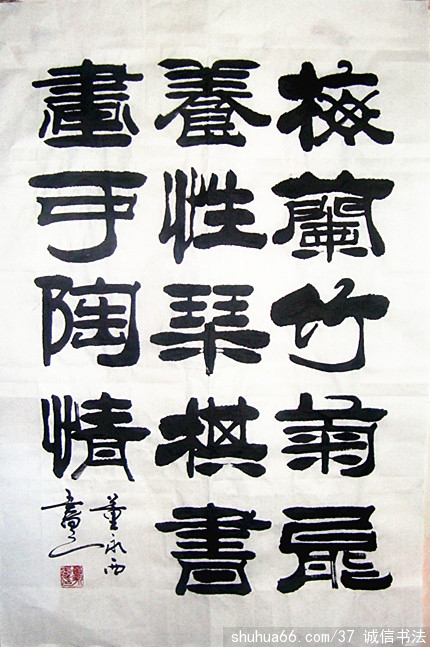 梅蘭竹菊能
養性琴棋書
畫可陶情
董永西
書
shuhua66.com/37 诚信书法